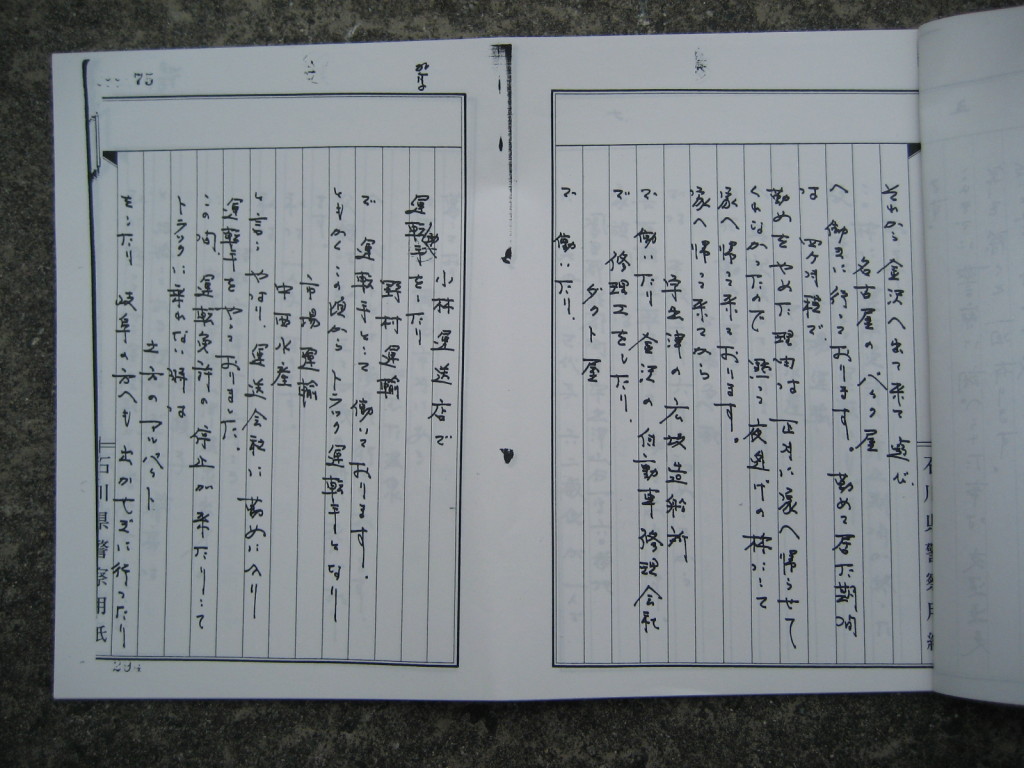 それから金沢へ出て来て遊び
名古屋の パック屋
へ 働きに行っております。 勤めて居た期間
は 四ヶ月程で
勤めをやめた理由は 正月に家へ帰らせて
くれなかったので 黙って夜逃げの様にして
家へ帰って来ております。
家へ帰って来てから
宇出津の 造船所
で 働いたり 金沢の 自動車修理会社
で 修理工をしたり、
タクト屋
で 働いたり、
小林運送店で
運転手をしたり
野村運輸
で 運転手として 働いております。
ともかくこの頃から トラック運転手となり
市場運輸
中田水産
と言い やはり 運送会社に 勤めに入り
運転手をやっておりました。
この間、運転免許の停止が 来たりして
トラックに乗れない時は
アッパット
をしたり 岐阜の方へも 出かせぎに行ったり
石川県警察用紙
石川県警察用紙
75
294